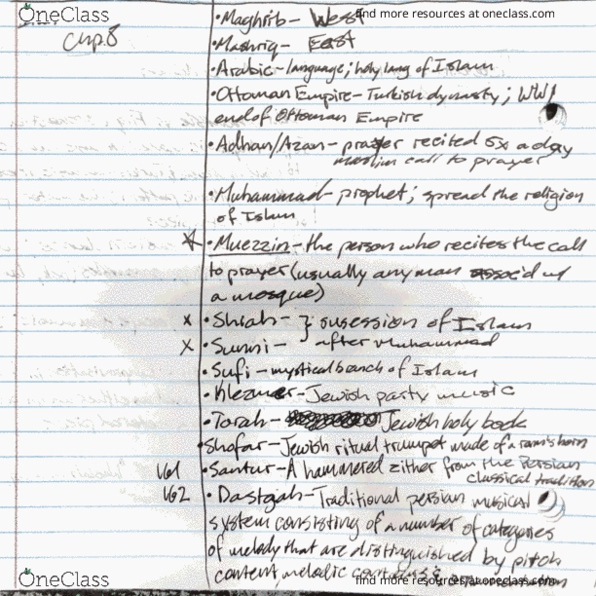 OneClass
find more resources at oneclass.com
Chp.8
•Maghrib- West
•Mashriq- East
•Arabic-language; holy lang of Islam
•Ottoman Empire-Turkish dynasty; WW1
end of Ottoman Empire
•Adhan/Azan- prayer recited 5x a day
muslim call to prayer
•Muhammad- prophet; spread the religion
of Islam
•Muezzin-the person who recites the call
to prayer (usually any man assoc'd w/
a mosque)
x •Shiah- } sucession of Islam
x •Sunni- } after Muhammad
•Sufi-mystical branch of Islam
•Klezmer-Jewish party music
•Torah- Jewish holy book
•Shofar-Jewish ritual trumpet made of a ram's horn
161 •Santur-A hammered zither from the Persian
classical tradition
162 •Dastgah-Traditional persian musical
system consisting of a number of categories
of melody that are distinguished by pitch
content, melodic
OneClass
find more resources at oneclass.com